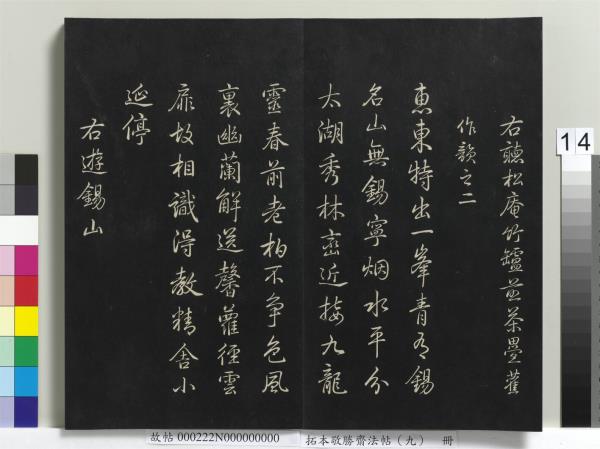 右聽松庵竹罏煎茶疊舊
作韻之二
惠東特出一峯青有錫
名山無錫寧烟水平分
太湖秀林巒近接九龍
靈春前老柏不争色風
裏幽蘭解送馨蘿徑雲
扉故相識得教精舍小
延停
右遊錫山
14
故帖 000222N000000000 拓本敬勝齋法帖（九） 冊